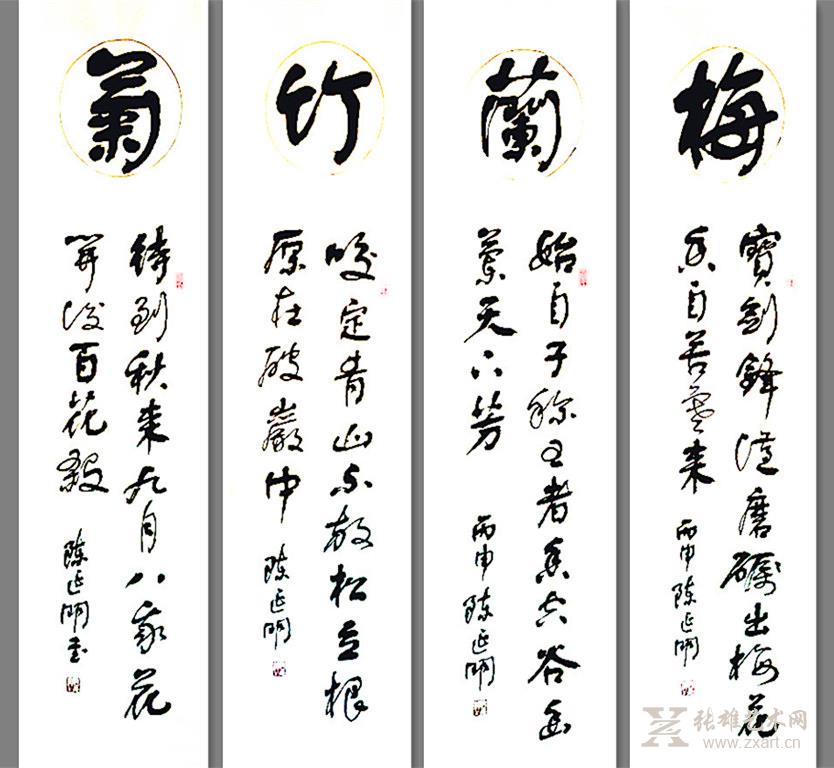 梅
寶劍鋒從磨礪出梅花
香自苦寒來
丙申陈延明
蘭
始自子称王者香空谷幽
蘭天下芳
丙申陈延明
竹
咬定青山不放松立根
原在破巖中
陈延明
菊
待到秋来九月八我花
開後百花殺
陈延明書
张雄艺术网
www.zxart.cn